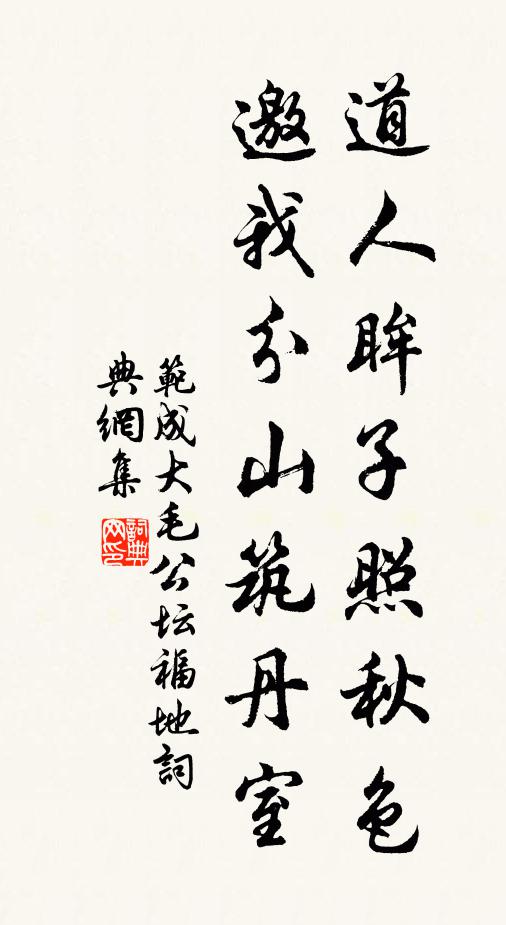 道人眸子照秋色
邀我分山筑丹室
範成大毛公坛福地詞
典網集
詞典
网印